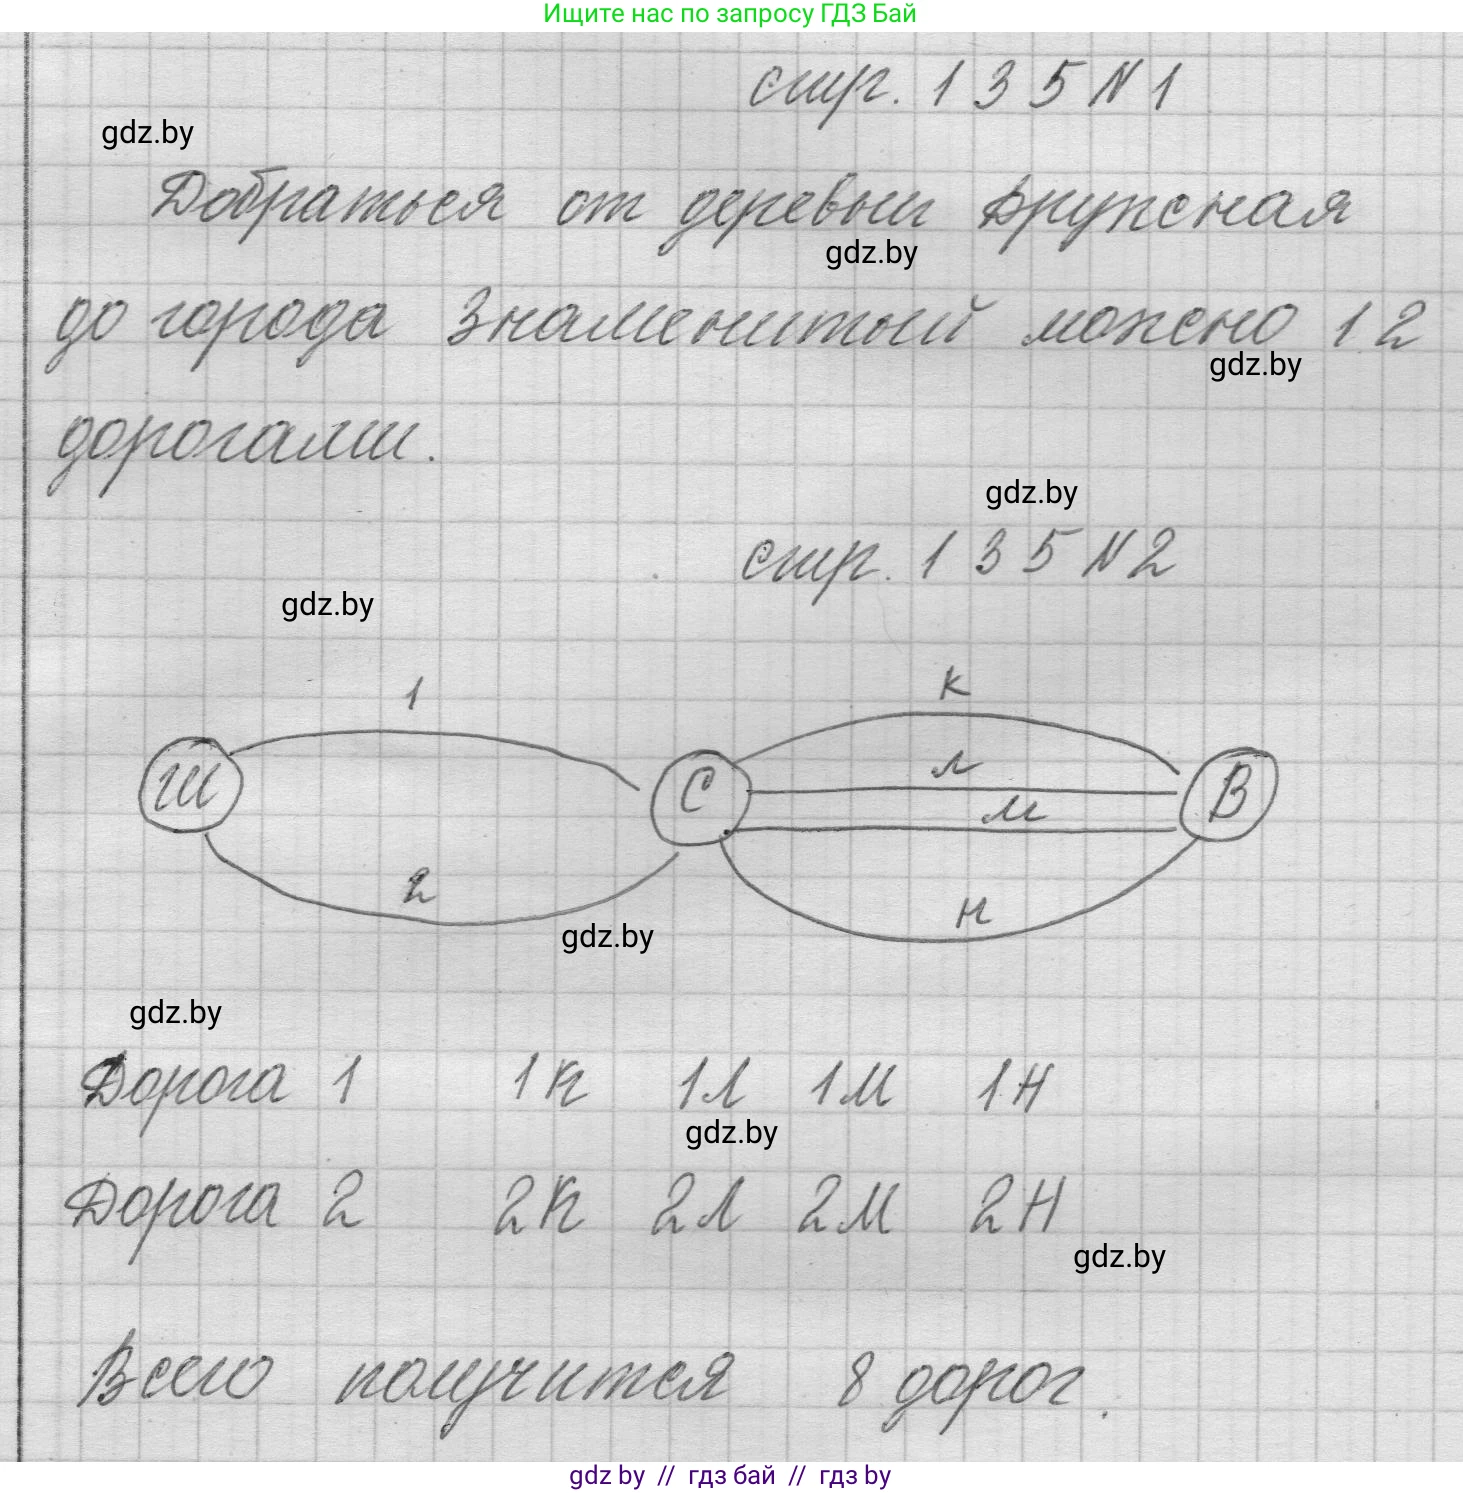 Ищите нас по запросу ГДЗ Бай
стр. 135 N 1
gdz.by
Добраться от деревни Дружная
gdz.by
до города Знаменитый можно 12
gdz.by
дорогами.
gdz.by
стр. 135 N 2
gdz.by
1
к
Ш
С
л
В
м
2
н
gdz.by
gdz.by
Дорога 1 1К 1Л 1М 1Н
gdz.by
Дорога 2 2К 2Л 2М 2Н
gdz.by
Всего получится 8 дорог.
gdz by // гдз бай // гдз by